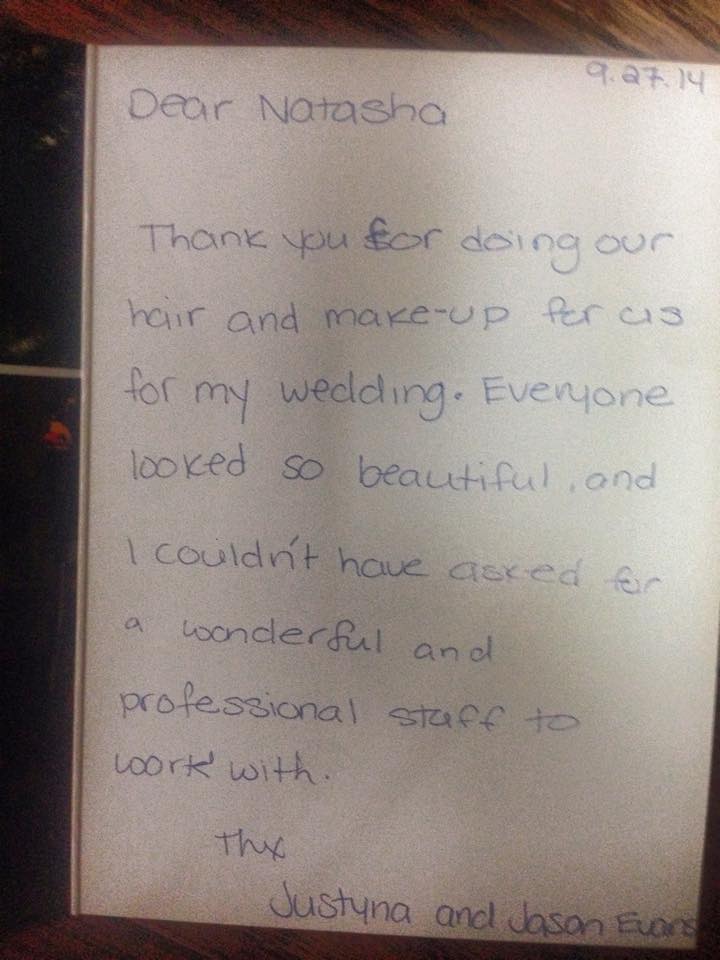 9.27.14
Dear Natasha
Thank you for doing our
hair and make-up for us
for my wedding. Everyone
looked so beautiful, and
I couldn't have asked for
a wonderful and
professional staff to
work with.
Thx
Justyna and Jason Evans